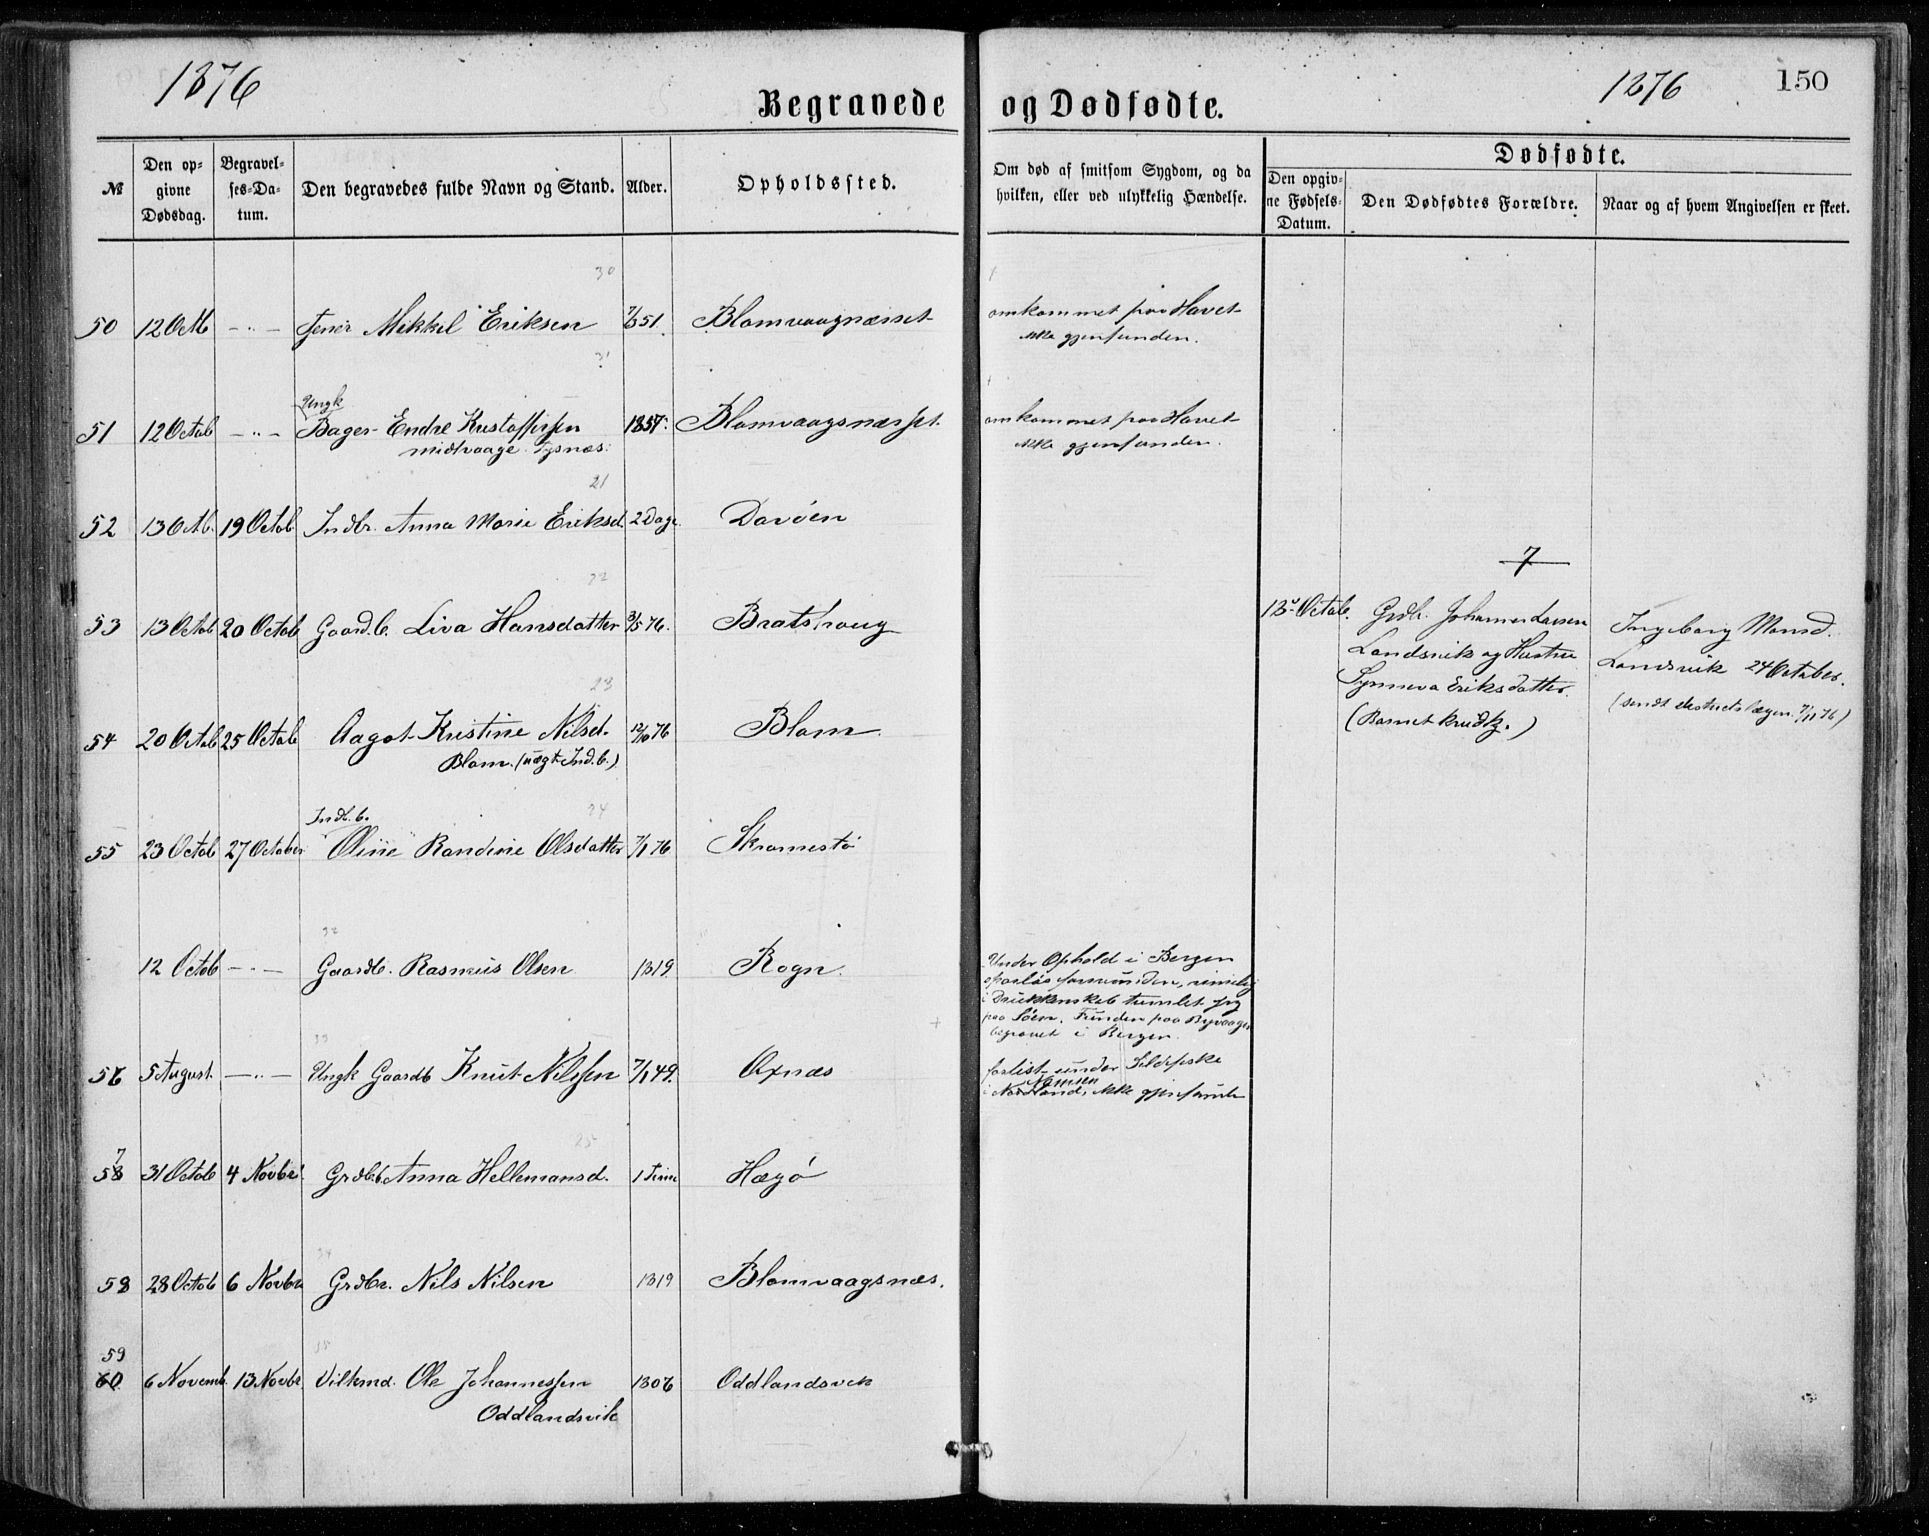 1876
Begravede og Dødfødte.
1876
150
№
Den opgivne Dødsdag.
Begravelses-Datum.
Den begravedes fulde Navn og Stand.
Alder.
Opholdssted.
Om død af smitsom Sygdom, og da hvilken, eller ved ulykkelig Hændelse.
Dødfødte.
Den opgivne Fødsels-Datum.
Den Dødfødtes Forældre.
Naar og af hvem Angivelsen er skeet.
30
50 12 Octb — " — Tener Mikkel Eriksen 51. Blomvaagnæsset omkommet paa Havet
ikke gjenfunden.
31
Ungk
51 12 Octob — " — Bager Endre Kristoffersen 1857 Blomvaagsnæsset omkommet paa Havet
midtvaage Tysnæs: ikke gjenfunden.
21
52 13 Octb. 19 Octob Indbr. Anna Marie Eriksd. 2 Dage Davöen
7
22
53 13 Octob 20 Octob Gaardb. Liva Hansdatter 3/5 76. Bratshaug
13de Octob. Grdb. Johannes Larsen
Landsvik og Hustru
Synneva Eriksdatter.
(Barnet kvidk.)
Ingeborg Monsd.
Landsvik 24 October.
(sendt distriktslægen 7/11 76)
23
54 20 Octob 25 Octob Aagot Kristine Nilsd. 12/10 76 Blom
Blom. (uægt Ind.b.)
24
Indb.
55 23 Octob 27 October Oline Randine Olsdatter 7/1 76 Skramestö
32
12 Octob — " — Gaardb. Rasmus Olsen 1819 Rogn.
Under Ophold i Bergen
sporlös forsvunden, rimelig
i Drukkenskab tumlet sig
paa Söen. Funden paa Byvaagen
begravet i Bergen.
33
56 5 August. — " — Ungk Gaardb Knut Nilssen 7/1 49. Oxnæs
forlist under Sildefiske
Namsen
i Nordland, ikke gjenfunden
25
7
58 31 Octob 4 Novbr. Grdb. Anna Hellemansd. 1 Time Hægö
34
58 28 Octob 6 Novbr Grdbr. Nils Nilsen 1819 Blomvaagsnæs.
59
35
60 6 Novemb. 13 Novbr Vilkmd. Ole Johannessen 1806 Oddlandsvik
Oddlandsvik